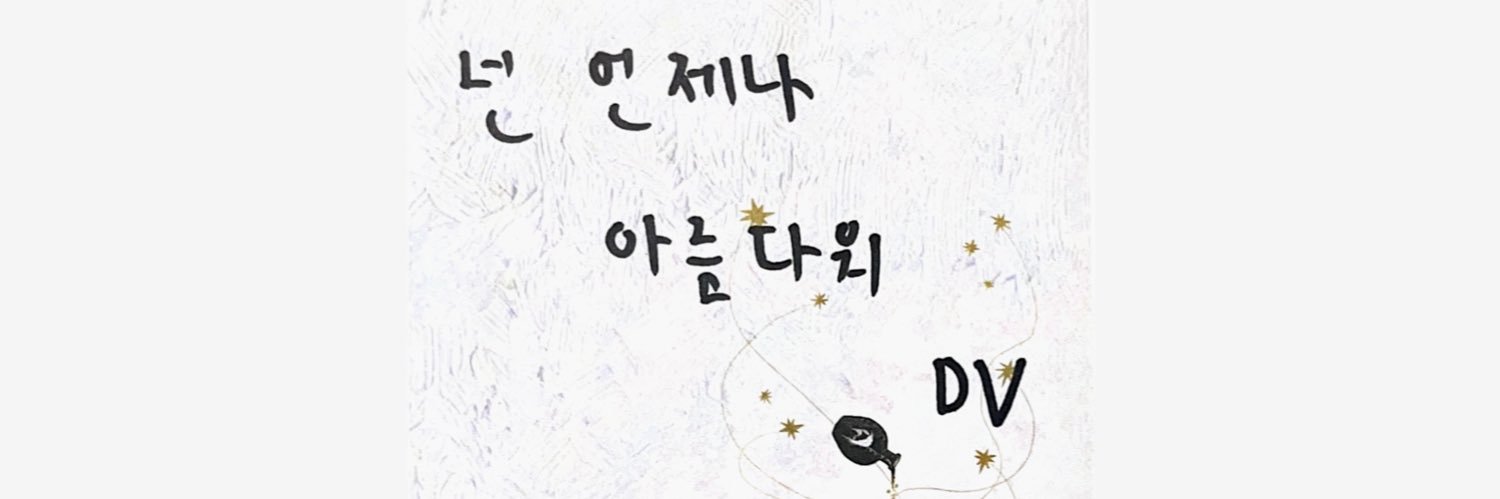 넌 언제나
아름다워
DV